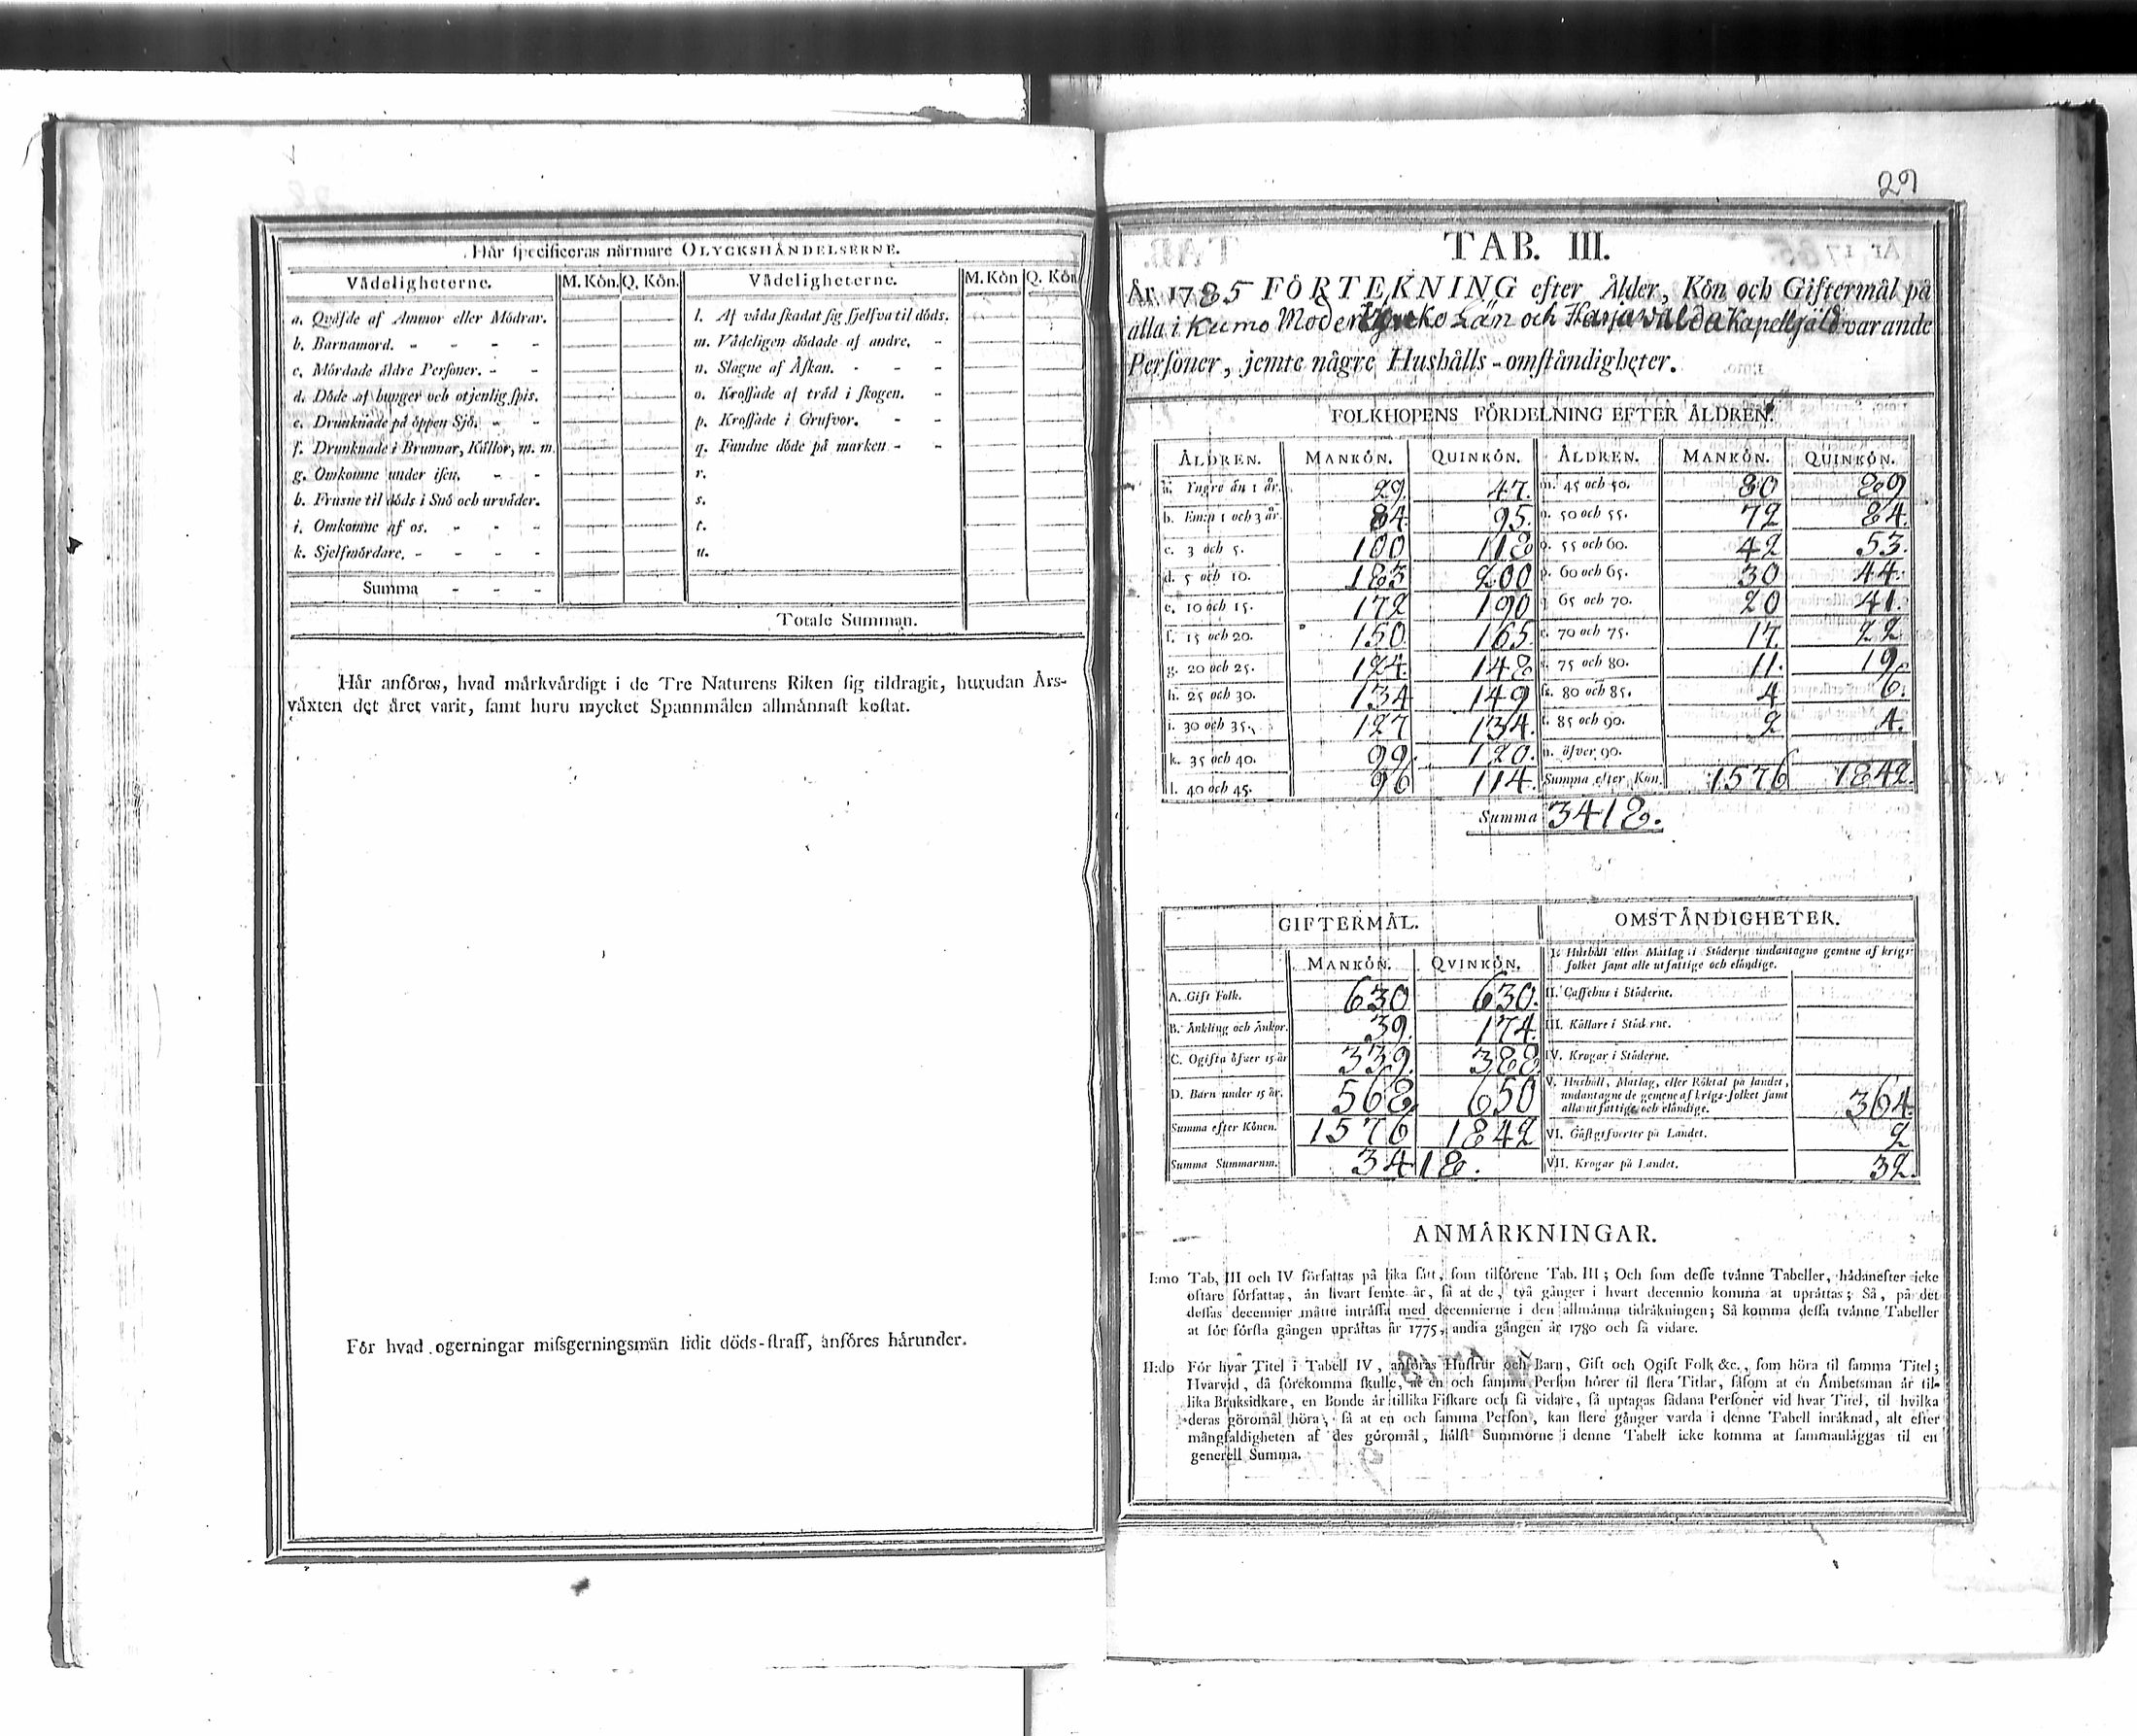 Här specificeras närmare OLYCKSHÄNDELSERNE.
Vådeligheterne. M. Kön. Q. Kön. Vådeligheterne. M. Kön Q. Kön
a. Qväfde af Ammor eller Mödrar. l. Af våda skadat sig sjelfva til döds.
b. Barnamord. - - - - m. Vådeligen dödade af andre. -
c. Mördade äldre Personer. - - n. Slagne af Åskan. - - -
d. Döde af hunger och otjenlig spis. o. Krossade af träd i skogen. -
e. Drunknade på öppen Sjö. - - p. Krossade i Grufvor. - -
f. Drunknade i Brunnar, Källor, m. m. q. Fundne döde på marken - -
g. Omkomne under isen. - - r.
h. Frusne til döds i Snö och urväder. s.
i. Omkomne af os. - - - t.
k. Sjelfmördare. - - - - u.
Summa - - -
Totale Summan.
Här anföres, hvad märkvärdigt i de Tre Naturens Riken sig tildragit, hurudan Års-
växten det året varit, samt huru mycket Spannmålen allmännast kostat.
För hvad ogerningar missgerningsmän lidit döds-straff, anföres härunder.
29
TAB. III.
År 1785 FÖRTEKNING efter Ålder, Kön och Giftermål på
alla i Kumo Moder Kyrko Län och Harjawalda Kapellgäld varande
Personer, jemte någre Hushålls-omständigheter.
FOLKHOPENS FÖRDELNING EFTER ÅLDREN.
ÅLDREN. MANKÖN. QUINKÖN. ÅLDREN. MANKÖN. QUINKÖN.
a. Yngre än 1 år. 29. 47. m. 45 och 50. 80 89
b. Emell. 1 och 3 år. 84. 95. n. 50 och 55. 72 84.
c. 3 och 5. 100 118 o. 55 och 60. 42 53.
d. 5 och 10. 183 200 p. 60 och 65. 30 44.
e. 10 och 15. 172 190 q. 65 och 70. 20 41.
f. 15 och 20. 150 165 r. 70 och 75. 17. 22
g. 20 och 25. 124. 148 s. 75 och 80. 11. 19.
h. 25 och 30. 134 149 ss. 80 och 85. 4 6.
i. 30 och 35. 127 134. t. 85 och 90. 2 4.
k. 35 och 40. 99. 120. u. öfver 90.
l. 40 och 45. 96 114. Summa efter Kön. 1576 1842.
Summa 3418.
GIFTERMÅL. OMSTÄNDIGHETER.
MANKÖN. QVINKÖN. I. Hushåll eller Matlag i Städerne undantagne gemene af krigs-
folket samt alle utfattige och eländige.
A. Gift Folk. 630 630. II. Caffehus i Städerne.
B. Änkling och Änkor. 39. 174. III. Källare i Städerne.
C. Ogifta öfver 15 år 339. 388 IV. Krogar i Städerne.
D. Barn under 15 år. 568. 650 V. Hushåll, Matlag, eller Röktal på landet,
undantagne de gemene af krigs-folket samt
alla utfattige och eländige. 364.
Summa efter Könen. 1576 1842 VI. Gästgifverier på Landet. 2
Summa Summarum. 3418. VII. Krogar på Landet. 32.
ANMÄRKNINGAR.
I:mo Tab. III och IV författas på lika sätt, som tilförene Tab. III; Och som desse tvänne Tabeller, hädanefter icke
oftare författas, än hvart femte år, så at de, två gånger i hvart decennio komma at uprättas; Så, på det
dessas decennier måtte inträffa med decennierne i den allmänna tidräkningen; Så komma dessa tvänne Tabeller
at för första gången uprättas år 1775, andra gången år 1780 och så vidare.
II:do För hvar Titel i Tabell IV, anföras Hustrur och Barn, Gift och Ogift Folk &c., som höra til samma Titel;
Hvarvid, då förekomma skulle, at en och samma Person hörer til flera Titlar, såsom at en Ämbetsman är til-
lika Bruksidkare, en Bonde är tillika Fiskare och så vidare, så uptagas sådana Personer vid hvar Titel, til hvilka
deras göromål höra, så at en och samma Person, kan flere gånger varda i denne Tabell inräknad, alt efter
mångfaldigheten af des göromål, hälst Summorne i denne Tabell icke komma at sammanläggas til en
generell Summa.